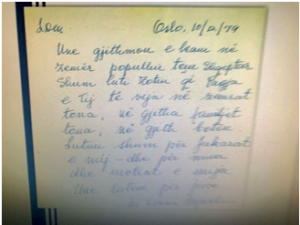 Oslo, 10/12/79
Une gjithmon e kam në
zemër popullin tem Shqiptar
Shum luti Zotin që Paqja
e Tij të vijë në zemrat
tona, në gjitha familjet
tona, në gjith botën
Lutem shum për fukarat
e mij - dhe për mua
dhe motrat e mija
Une lutem për juve